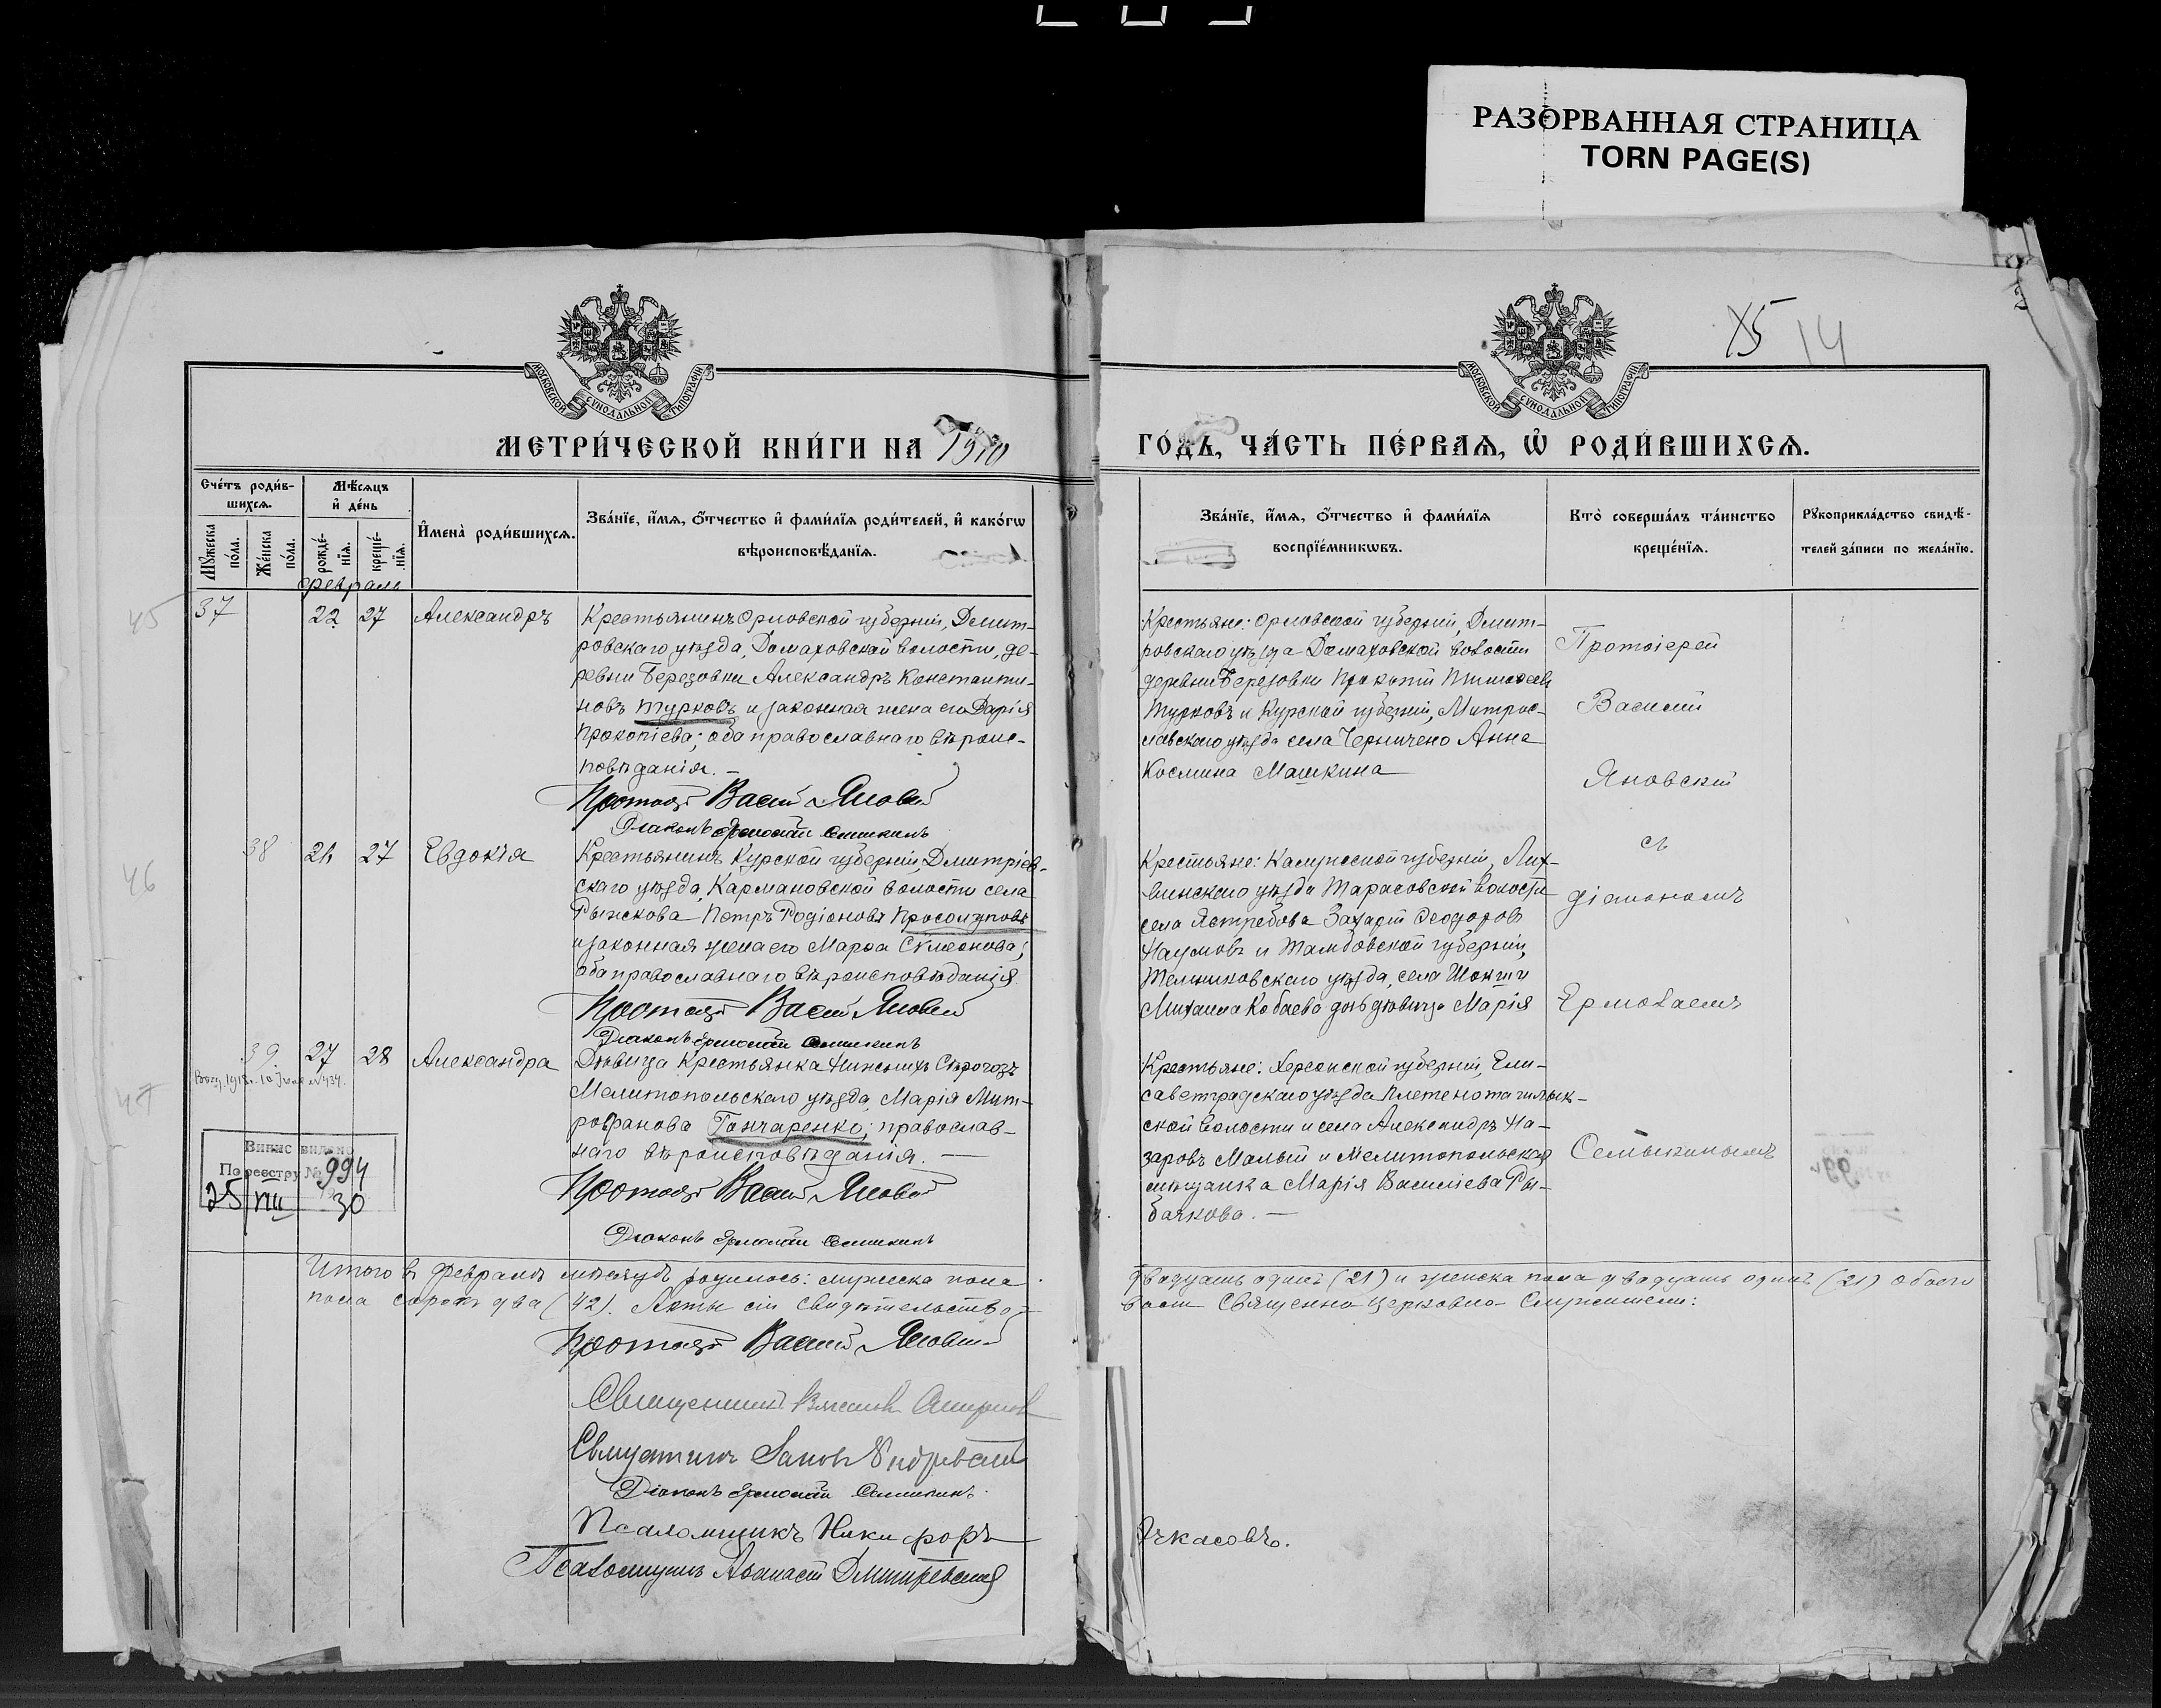 РАЗОРВАННАЯ СТРАНИЦА
TORN PAGE(S)
МОСКОВСКОЙ СѴНОДАЛЬНОЙ ТИПОГРАФІИ
МОСКОВСКОЙ СѴНОДАЛЬНОЙ ТИПОГРАФІИ
15 14
МЕТРИ́ЧЕСКОЙ КНИ́ГИ НА 1910
ГО́ДЪ, ЧА́СТЬ ПЕ́РВАЯ, Ѡ҆ РОДИ́ВШИХСЯ.
Сче́тъ роди́в-
шихся.
Мѣ́сяцъ
и҆ де́нь
Мꙋ́жеска
по́ла.
Же́нска
по́ла.
рожде́-
нїя.
креще́-
нїя.
И҆мена̀ роди́вшихся.
Зва́нїе, и҆́мя, ѻ҆́тчество и҆ фами́лїя роди́телей, и҆ како́гѡ
вѣроисповѣ́данїя.
Зва́нїе, и҆́мя, ѻ҆́тчество и҆ фами́лїя
воспрїе́мникѡвъ.
Кто̀ соверша́лъ та́инство
креще́нїя.
Рꙋкоприкла́дство свидѣ́-
телей за́писи по жела́нїю.
Февраль
45 37 22 27 Александръ
Крестьянинъ Орловской губерніи, Дмит-
ровскаго уѣзда, Домаховской волости, де-
ревни Березовки Александръ Константи-
новъ Турковъ и законная жена его Дарія
Прокопіева; оба православнаго вѣроис-
повѣданія. —
Діаконъ Ермолай Семыкинъ
Крестьяне: Орловской губерніи, Дмит-
ровскаго уѣзда Домаховской волости
деревни Березовки
Турковъ и Курской губерніи,
уѣзда села Анна
Космина Машкина
Протоіерей
Василій
Яновскій
съ
діакономъ
Ермолаемъ
Семыкинымъ
46 38 24 27 Евдокія
Крестьянинъ Курской губерніи, Дмитріев-
скаго уѣзда, Кармановской волости села
Рыжкова Петръ Родіоновъ Просолуповъ
и законная жена его Марѳа Сѵмеонова;
оба православнаго вѣроисповѣданія.
Діаконъ Ермолай Семыкинъ
Крестьяне: Калужской губерніи, Лих-
винскаго уѣзда Тарасовской волости
села Ястребова Захарій Ѳеодоровъ
Наумовъ и Тамбовской губерніи,
Темниковскаго уѣзда, села Шокши
Михаила Кобаева дочь дѣвица Марія
47 39 27 28 Александра
Дѣвица Крестьянка Нижнихъ Сѣрогозъ
Мелитопольскаго уѣзда, Марія Мит-
рофанова Гончаренко; православ-
наго вѣроисповѣданія. —
Діаконъ Ермолай Семыкинъ
Крестьяне: Херсонской губерніи, Ели-
саветградскаго уѣзда Плетеноташлык-
ской волости и села Александръ На-
заровъ Малый и Мелитопольская
мѣщанка Марія Василіева Ры-
бачкова. —
Випис видано
По реєстру № 994
25 VII 30
Итого въ Февралѣ мѣсяцѣ родилось: мужеска пола
двадцать одинъ (21) и женска пола двадцать одинъ (21) обоего
пола сорокъ два (42). Акты сіи свидѣтельство-
вали Священно церковно-Служители:
Діаконъ Ермолай Семыкинъ.
Псаломщикъ Никифоръ
Ачкасовъ.
Псаломщикъ Аѳанасій Дмитревскій